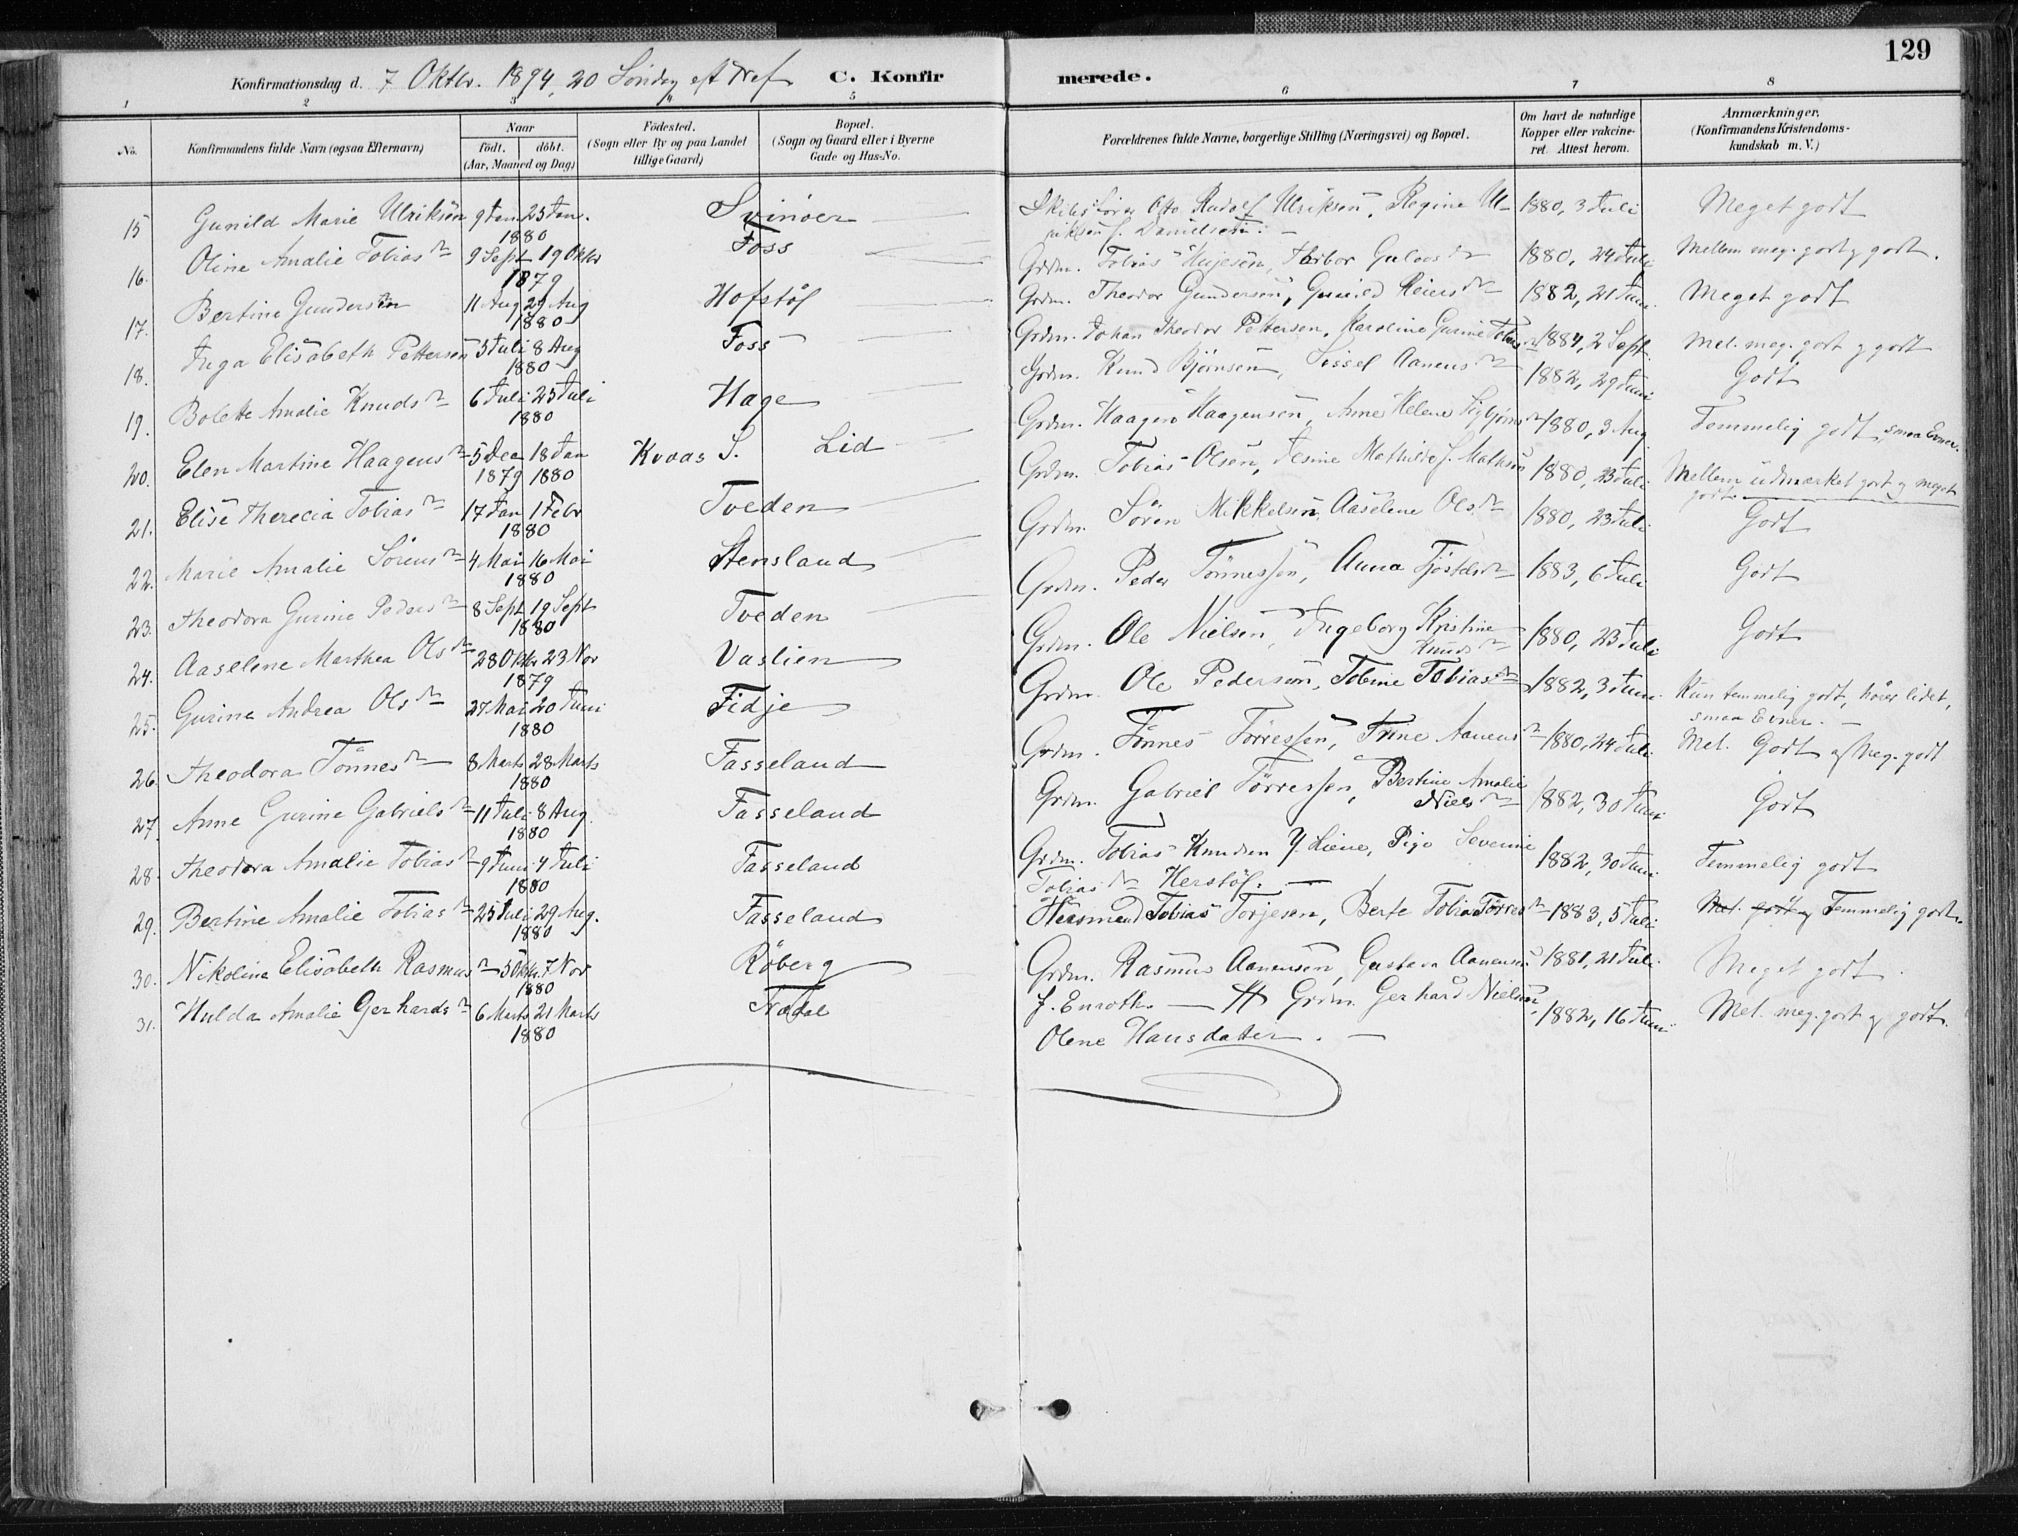 129
Konfirmationsdag d. 7 Oktbr. 1894, 20 Søndag eft Tref C. Konfirmerede.
1 2 3 5 6 7 8
No.
Konfirmandens fulde Navn (ogsaa Efternavn)
Naar
født. døbt.
(Aar, Maaned og Dag)
Fødested.
(Sogn eller By og paa Landet
tillige Gaard)
Bopæl.
(Sogn og Gaard eller i Byerne
Gade og Hus-No.
Forældrenes fulde Navne, borgerlige Stilling (Næringsvei) og Bopæl.
Om havt de naturlige
Kopper eller vakcine-
ret. Attest herom.
Anmærkninger.
(Konfirmandens Kristendoms-
kundskab m. V.)
15 Gunild Marie Ulriksen 9 Jan 25 Jan. 1880 Svinøer Otto Rudolf Ulriksen, Regine Ul-
riksen f. Danielsen. 1880, 3 Juli Meget godt
16. Oline Amalie Tobiasdr 9 Sept 19 Oktbr 1879 Foss Grdm. Tobias 1880, 24 Juli Mellem meg. godt og godt.
17. Bertine Gundersen 11 Aug 29 Aug 1880 Hofstøl Grdm. Theodor Gundersen, Gunild Reiersdr 1882, 21 Juni Meget godt
18. Inga Elisabeth Pettersen 3 Juli 8 Aug 1880 Foss Grdm. Johan Theodor Pettersen, Karoline Gurine Tobiasdr 1884, 2 Sept. Mel. meg. godt og godt
19. Bolette Amalie Knudsdr 6 Juli 25 Juli 1880 Hage Grdm. Knud Bjørnsen, Sissel Aanensdr 1882, 29 Juni Godt
20. Elen Martine Haagensdr 5 Dec 1879 18 Jan 1880 Kvaas S. Lid Grdm. Haagen Haagensen, Anne Helene Sigbjørnsdr 1880, 3 Aug Temmelig godt, smaa Evner.
21. Elise Therecia Tobiasdr 17 Jan 1 Febr 1880 Tveden Grdm. Tobias Olsen, Jesine Mathilde f. Mathisen 1880, 23 Juli Mellem udmærket godt og meget
godt
22. Marie Amalie Sørensdr 4 Mai 16 Mai 1880 Stensland Grdm Søren Mikkelsen, Aaselene Olsdr 1880, 23 Juli Godt
23. Theodora Gurine Pedersdr 8 Sept 19 Sept 1880 Tveden Grdm. Peder Tønnessen, Anna Fjøstdr 1883, 6 Juli Godt
24. Aaselene Marthea Olsdr 28 Oktbr 23 Nov 1879 Vaslien Grdm. Ole Nielsen, Ingeborg Kristine
Knudsdr 1880, 23 Juli Godt
25. Gurine Andrea Olsdr 27 Mai 20 Juni 1880 Fidje Grdm. Ole Pedersen, Tobine Tobiasdr 1882, 3 Juni Kun temmelig godt, hører lidet,
smaa Evner.
26. Theodora Tønnesdr 8 Marts 28 Marts 1880 Fasseland Grdm. Tønnes Tørressen, Trine Aanensdr 1880, 24 Juli Mel. Godt og Meg. godt
27. Anne Gurine Gabrielsdr 11 Juli 8 Aug. 1880 Fasseland Grdm. Gabriel Tørressen, Bertine Amalie
Nielsdr 1882, 30 Juni Godt
28. Theodora Amalie Tobiasdr 9 Juni 4 Juli 1880 Fasseland Grdm. Tobias Knudsen Y. Liene, Pige Severine
Tobiasdr Herstøl. 1882, 30 Juni Temmelig godt
29. Bertine Amalie Tobiasdr 25 Juli 29 Aug. 1880 Fasseland Huusmand Tobias Torjesen, Berte Tobia Tørresdr 1883, 5 Juli Mel. godt og Temmelig godt.
30. Nikoline Elisabeth Rasmusdr 5 Oktbr. 7 Nov 1880 Røberg Grdm. Rasmus Aanensen, Gustava Aanensen
f. Enroth 1881, 21 Juli Meget godt.
31. Hulda Amalie Gerhardsdr 6 Marts 21 Marts 1880 Trædal Grdm. Gerhard Nielsen,
Olene Hansdatter. 1882, 16 Juni Mel. meg. godt og godt.